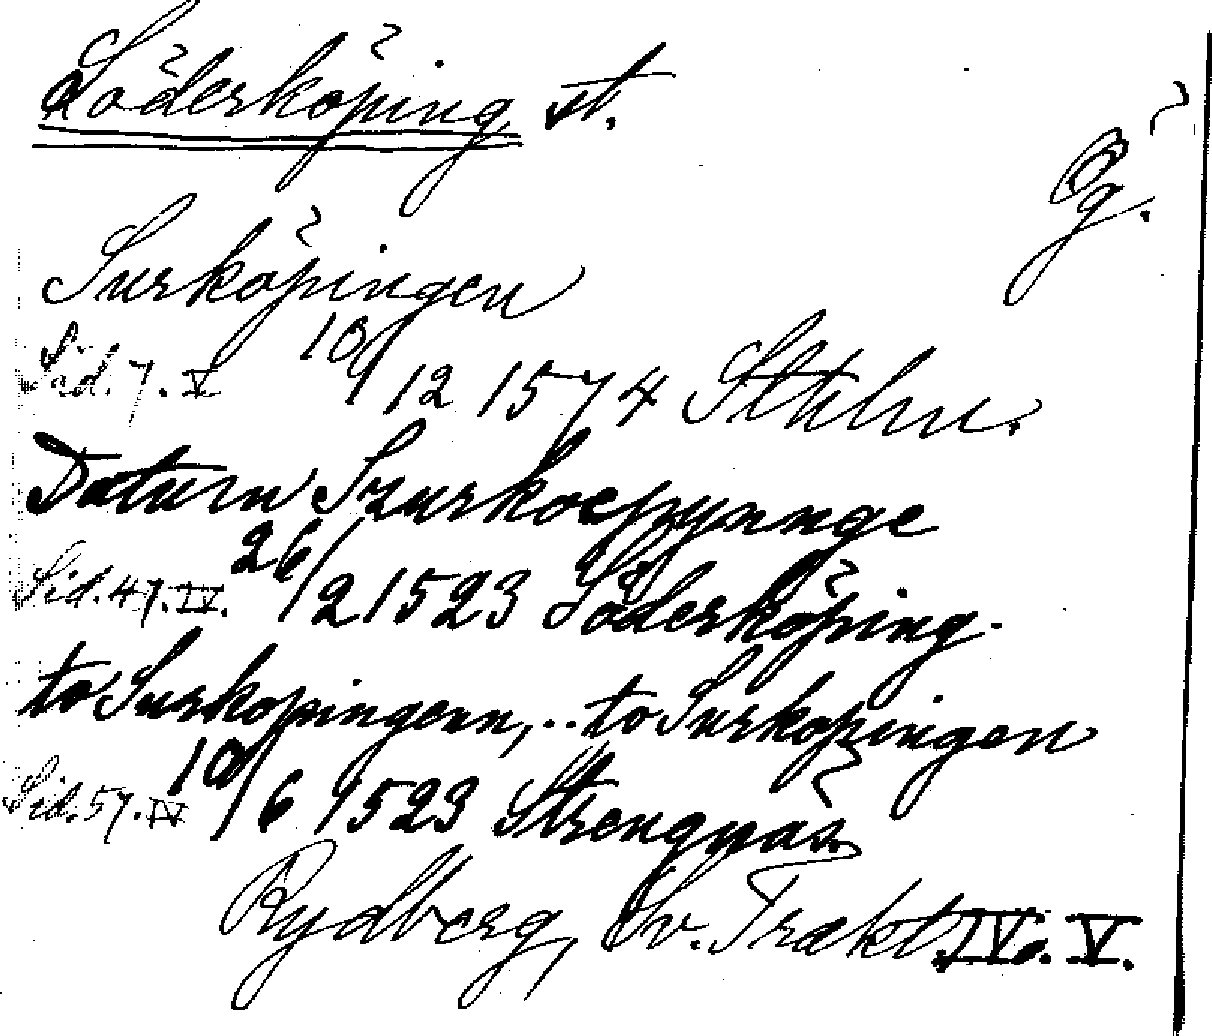 Söderköping st.
Ög.
Surköpingen
Sid. 7. V 10/12 1574 Sthlm.
Datum Szurkoepynnge
Sid. 47. IV. 26/2 1523 Söderköping.
to Surkopingenn, .. to Surkopingen
Sid. 57. IV 10/6 1523 Strengnäs
Rydberg, Sv. Trakt. IV o. V.